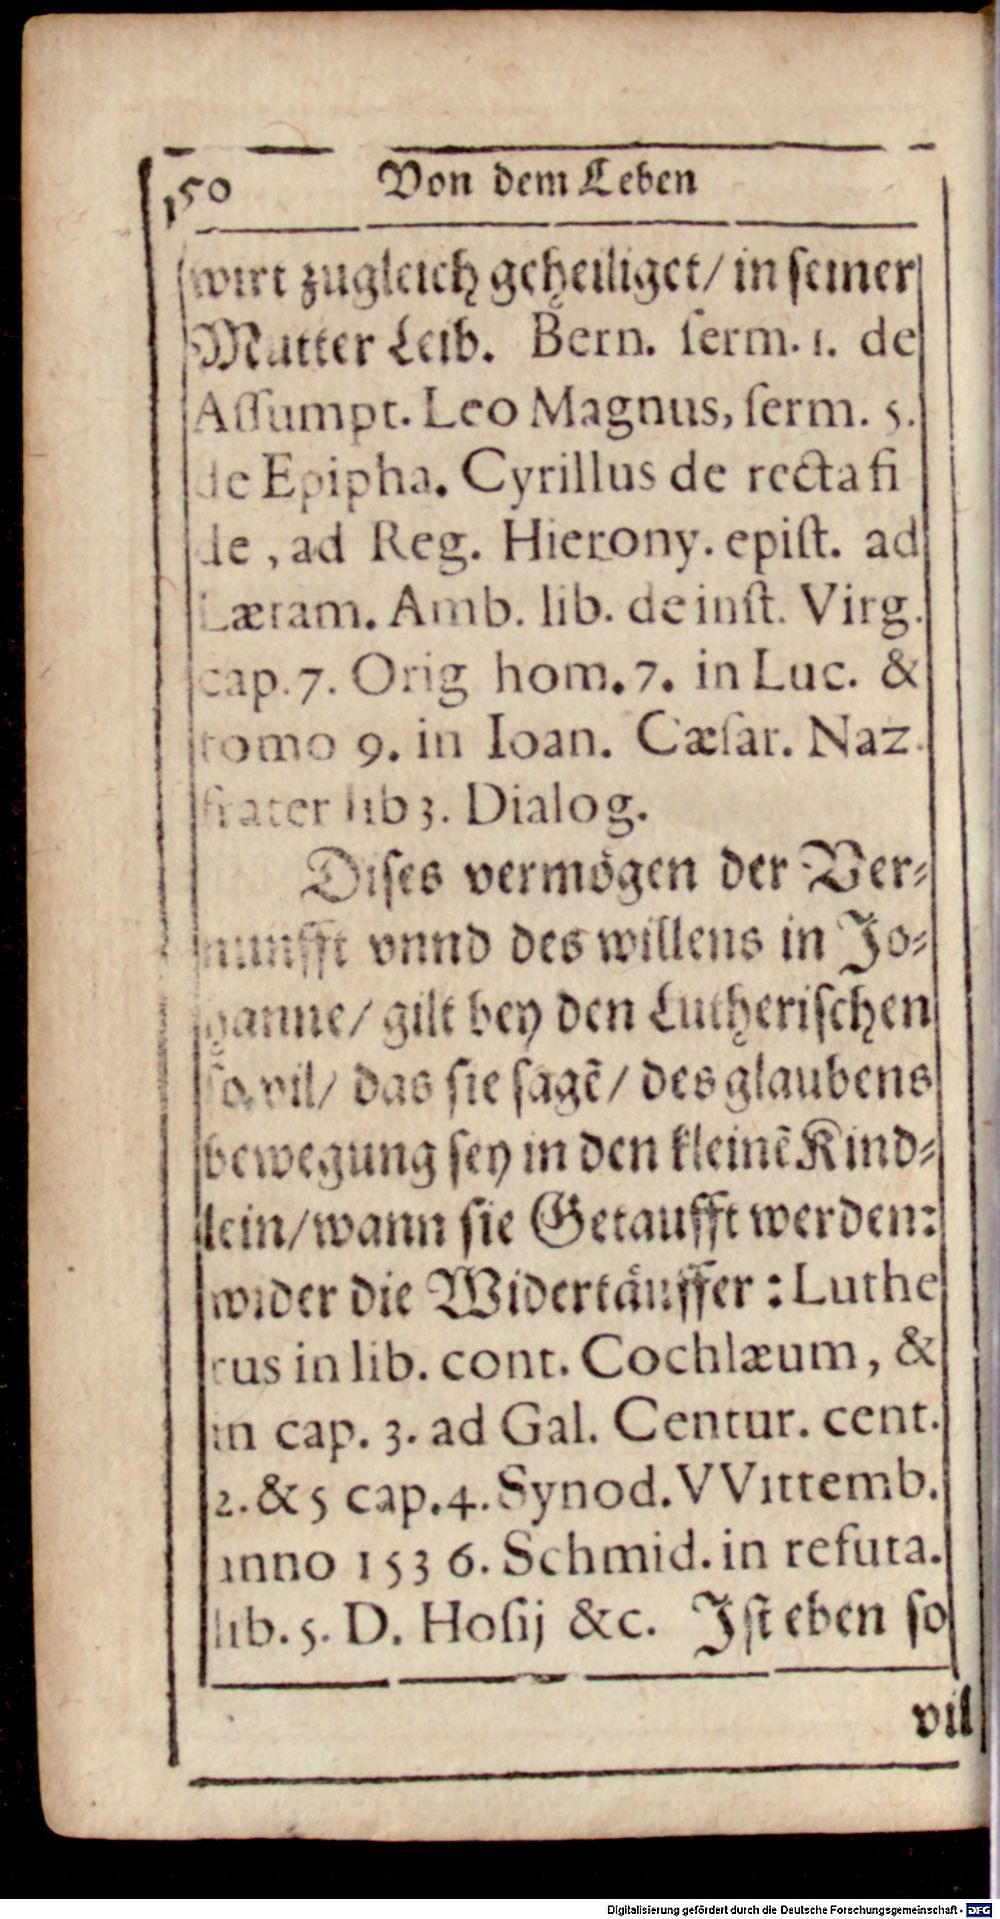 150 Von dem Leben
wirt zugleich geheiliget/ in seiner
Mutter Leib. Bern. ſerm. 1. de
Aſſumpt. Leo Magnus, ſerm. 5.
de Epipha. Cyrillus de recta fi
de, ad Reg. Hierony. epiſt. ad
Lætam. Amb. lib. de inſt. Virg.
cap. 7. Orig hom. 7. in Luc. &
tomo 9. in Ioan. Cæſar. Naz.
frater lib 3. Dialog.
Diſes vermögen der Ver⸗
nunfft vnnd des willens in Jo⸗
hanne/ gilt bey den Lutheriſchen
ſo vil/ das ſie ſagẽ/ des glaubens
bewegung ſey in den kleinẽ Kind⸗
lein/ wann ſie Getaufft werden:
wider die Widertäuffer: Luthe
rus in lib. cont. Cochlæum, &
in cap. 3. ad Gal. Centur. cent.
2. & 5 cap. 4. Synod. VVittemb.
anno 1536. Schmid. in refuta.
lib. 5. D. Hoſij &c. Jſt eben ſo
vil
Digitalisierung gefördert durch die Deutsche Forschungsgemeinschaft - DFG